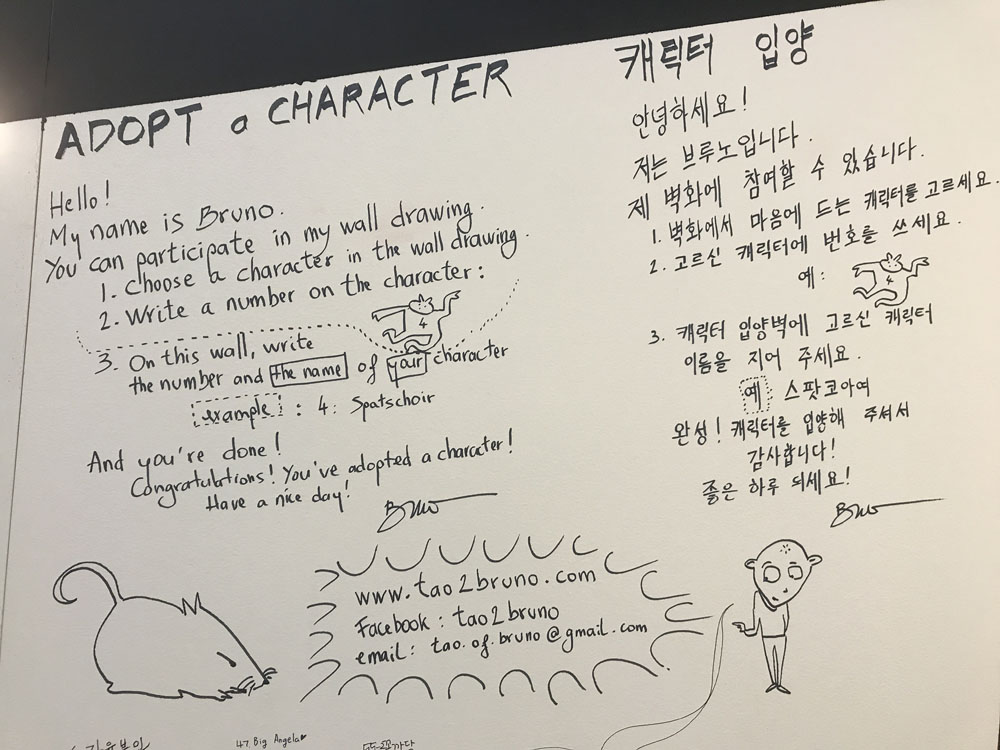 ADOPT a CHARACTER
Hello!
My name is Bruno.
You can participate in my wall drawing.
1. Choose a character in the wall drawing.
2. Write a number on the character:
4
3. On this wall, write
the number and the name of your character
example : 4: Spatschoir
And you're done!
Congratulations! You've adopted a character!
Have a nice day!
Bruno
캐릭터 입양
안녕하세요!
저는 브루노입니다.
제 벽화에 참여할 수 있습니다.
1. 벽화에서 마음에 드는 캐릭터를 고르세요.
2. 고르신 캐릭터에 번호를 쓰세요.
예:
4
3. 캐릭터 입양벽에 고르신 캐릭터
이름을 지어 주세요.
예: 스팟코아여
완성! 캐릭터를 입양해 주셔서
감사합니다!
좋은 하루 되세요!
Bruno
www.tao2bruno.com
Facebook : tao2bruno
email: tao.of.bruno@gmail.com
47. Big Angela♥